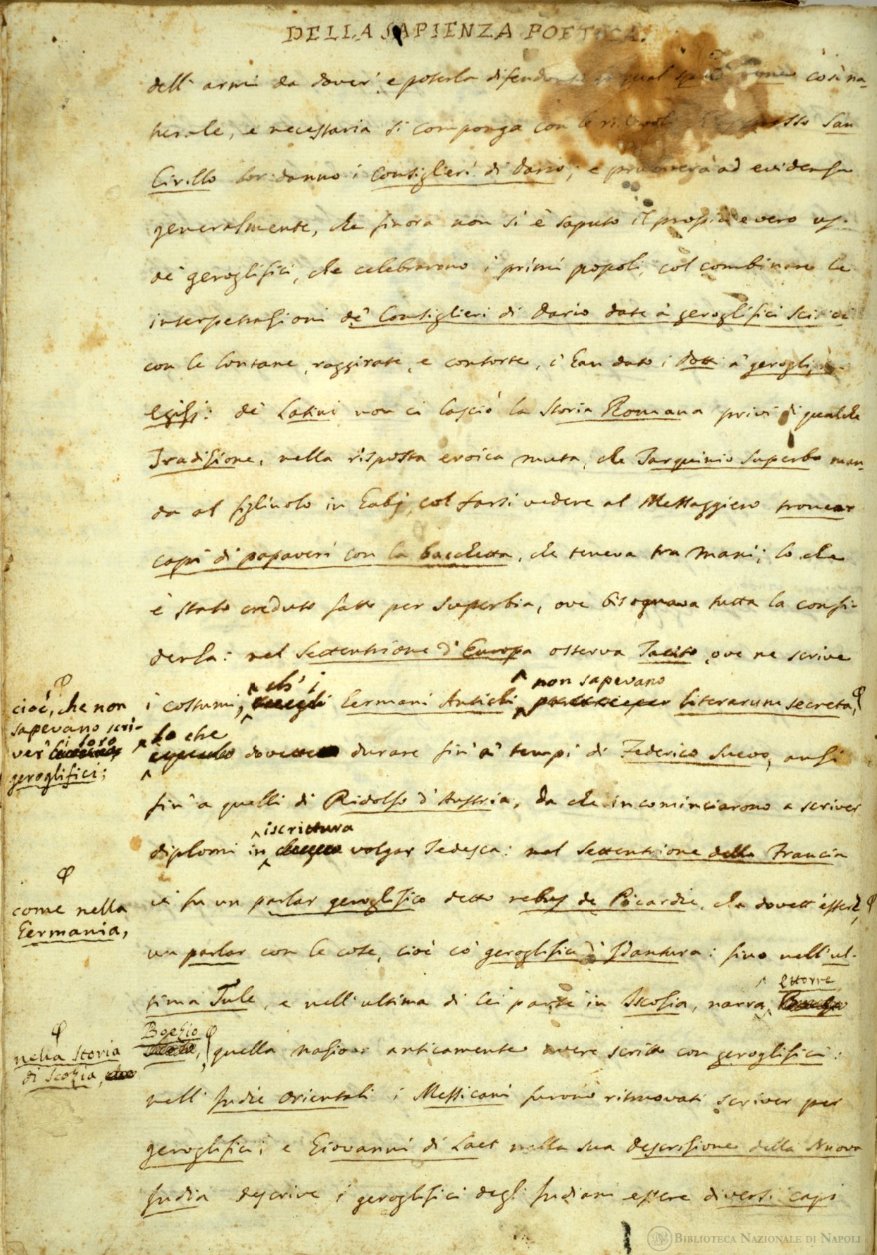 DELLA SAPIENZA POETICA.
dell' armi da doversi e poterla difendere: la qual spiegazione così na-
turale, e necessaria si componga con le ridevoli ch'appresso San
Cirillo lor danno i Consiglieri di Dario; e pruoverà ad evidenza
generalmente, che finora non si è saputo il propio e vero uso
de' geroglifici, che celebrarono i primi popoli, col combinare le
interpetrazioni de' Consiglieri di Dario date a' geroglifici Scitici
con le lontane, raggirate, e contorte, c'han dato i Dotti a' geroglifici
Egizj: de' Latini non ci lasciò la Storia Romana privi di qualche
Tradizione, nella risposta eroica muta, che Tarquinio Superbo man-
da al figliuolo in Gabj, col farsi vedere al Messaggiero troncar
capi di papaveri con la bacchetta, che teneva tra mani; lo che
è stato creduto fatto per superbia, ove bisognava tutta la confi-
denza: nel Settentrione d'Europa osserva Tacito, ove ne scrive
i costumi, ch' i Germani Antichi non sapevano literarum secreta,
cioè, che non
sapevano scri-
ver' i loro
geroglifici;
lo che dovette durare fin' a' tempi di Federico Suevo, anzi
fin' a quelli di Ridolfo d'Austria, da che incominciarono a scriver
diplomi in iscrittura volgar Tedesca: nel Settentrione della Francia
vi fu un parlar geroglifico detto rebus de Picardie, che dovett' essere,
come nella
Germania,
un parlar con le cose, cioè co' geroglifici d'Idantura: fino nell'ul-
tima Tule, e nell'ultima di lei parte in Iscozia, narra Ettorre
Boezio
nella Storia
di Scozia,
quella nazione anticamente avere scritto con geroglifici:
nell' Indie Orientali i Messicani furono ritruovati scriver per
geroglifici; e Giovanni di Laet nella sua descrizione della Nuova
India descrive i geroglifici degl' Indiani essere diversi capi
BIBLIOTECA NAZIONALE DI NAPOLI